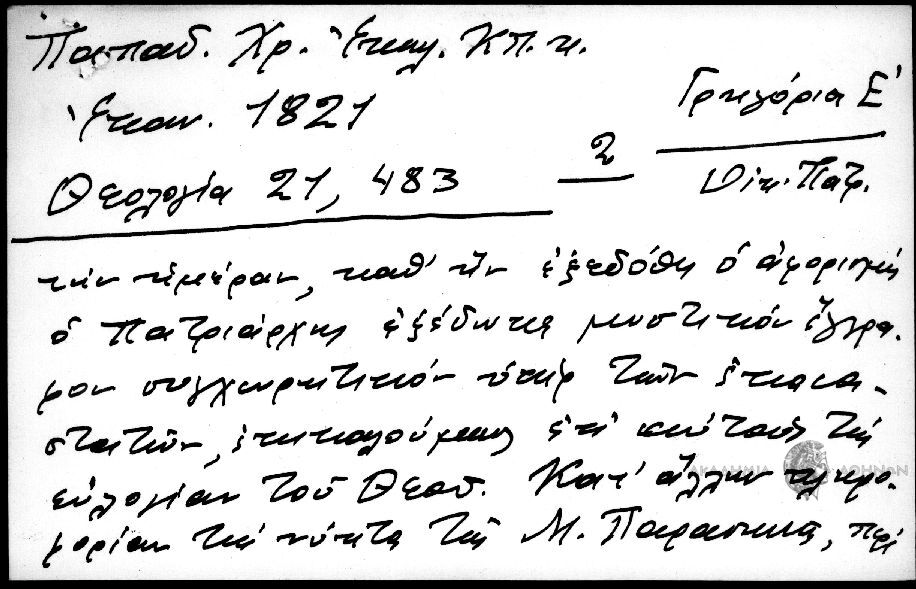 Παπαδ. Χρ. Ἐκκλ. Κπ. κ.
Ἐπαν. 1821
Γρηγόριος Ε'
Θεολογία 21, 483
2
Οἰκ. Πατρ.
τὴν ἡμέραν, καθ' ἣν ἐξεδόθη ὁ ἀφορισμὸς
ὁ Πατριάρχης ἐξέδωκε μυστικὸν ἔγγρα-
φον συγχωρητικὸν ὑπὲρ τῶν ἐπανα-
στατῶν, ἐπικαλούμενος ἐπ' αὐτοὺς τὴν
εὐλογίαν τοῦ Θεοῦ. Κατ' ἄλλην πληρο-
φορίαν τὴν νύκτα τῆς Μ. Παρασκευῆς, περὶ
ΑΚΑΔΗΜΙΑ ΑΘΗΝΩΝ